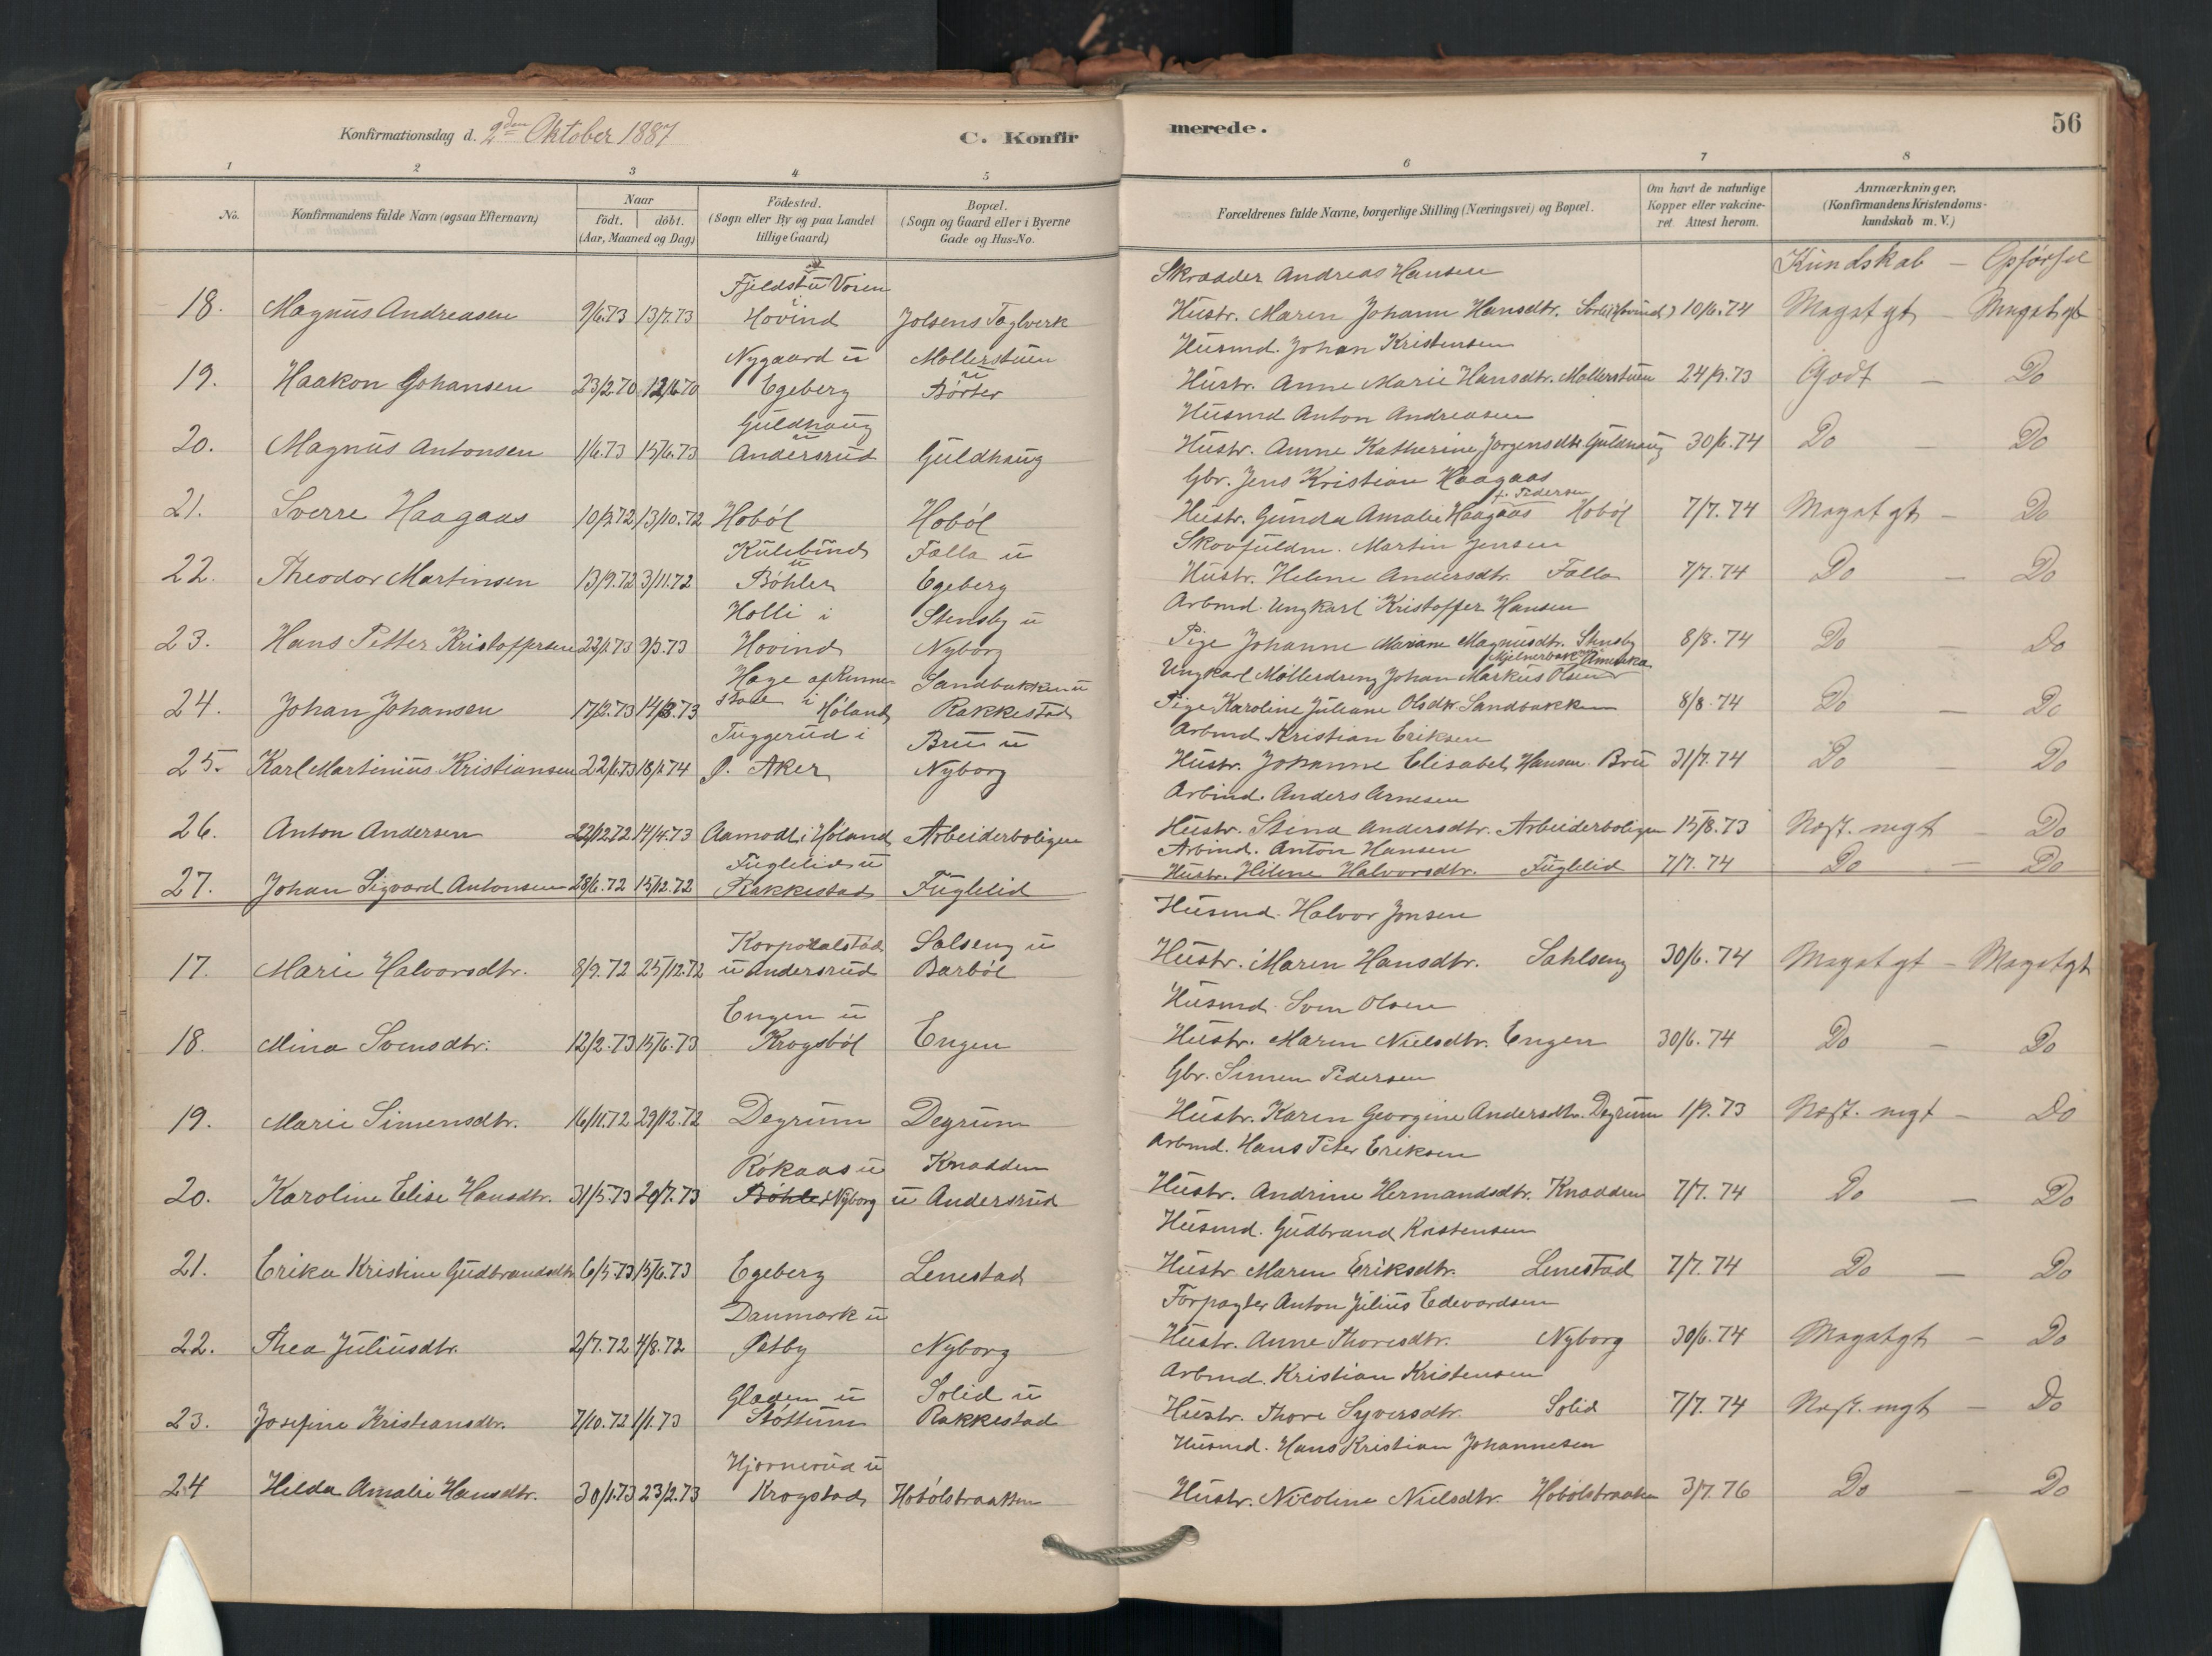 Konfirmationsdag d. 2den Oktober 1887
C. Konfirmerede.
56
1 2 3 4 5 6 7 8
No.
Konfirmandens fulde Navn (ogsaa Efternavn)
Naar
født. døbt.
(Aar, Maaned og Dag)
Födested.
(Sogn eller By og paa Landet
tillige Gaard)
Bopæl.
(Sogn og Gaard eller i Byerne
Gade og Hus-No.
Forældrenes fulde Navne, borgerlige Stilling (Næringsvei) og Bopæl.
Om havt de naturlige
Kopper eller vakcine-
ret Attest herom.
Anmærkninger.
(Konfirmandens Kristendoms-
kundskab m. V.)
Kundskab - Opførsel
Fjeldst Voien i
Skrædder Andreas Hansen
18. Magnus Andreasen 9/6.73 13/7.73 Hovind Jolsens Taglverk Hustr. Maren Johanne Hansdtr. 10/6.74 Megetgt - Megetgt
Nygaard u Møllerstuen u Husmd. Johan Kristensen
19. Haakon Johansen 23/2.70 Egeberg Børter Hustr. Anne Marie Hansdtr. Møllerstuen 24/9.73 Godt - Do
Guldhaug u Husmd Anton Andreasen
20. Magnus Antonsen 1/6.73 15/6.73 Andersrud Guldhaug Hustr. Anne Katherine Jørgensdtr. Guldhaug 30/6.74 Do - Do
Gbr. Jens Kristian Haagaas
f. Pedersen
21. Sverre Haagaas 10/9.72 13/10.72 Hobøl Hobøl Hustr. Gunda Amalie Haagaas Hobøl 7/7.74 Megetgt - Do
Kulebund u Falla u Skovfuldm. Martin Jensen
22. Theodor Martinsen 13/9.72 3/11.72 Bøhler Egeberg Hustr. Helene Andersdtr. Falla 7/7.74 Do - Do
Holli i Stensby u Arbmd. Ungkarl Kristoffer Hansen
23. Hans Petter Kristoffersen 9/3.73 Hovind Nyborg Pige Johanne Mariane Magnusdtr. Stensby 8/8.74 Do Do
Hage af Sandbakken u Ungkarl Møllerdreng Johan Markus Olsen Amerika
24. Johan Johansen 17/2.73 i Høland Rakkestad Pige Karoline Juliane Olsdtr. Sandbakken 8/8.74 Do - Do
Tuggerud i Bru u Arbmd. Kristian Eriksen
25. Karl Martinius Kristiansen Aker Nyborg Hustr. Johanne Elisabet Hansen Bru 31/7.74 Do - Do
Arbmd. Anders Arnesen
26. Anton Andersen 14/4.73 Aamodt i Høland Arbeiderboligen Hustr. Stina Andersdtr. Arbeiderboligen 15/8.73 Næst. mgt - Do
Fuglelid u Arbmd. Anton Hansen
27. Johan Sigvard Antonsen 28/6.72 15/12.72 Rakkestad Fuglelid Hustr. Helene Halvorsdtr. Fuglelid 7/7.74 Do - Do
Korporalstad Salseng u Husmd. Halvor Jonsen
17. Marie Halvorsdtr. 8/9.72 25/12.72 u Andersrud Barbøl Hustr. Maren Hansdtr. Sahlseng 30/6.74 Megetgt - Megetgt
Engen u Husmd. Sven Olsen
18. Mina Svensdtr. 12/2.73 15/6.73 Krogsbøl Engen Hustr. Maren Nielsdtr. Engen 30/6.74 Do - Do
Gbr. Simen Pedersen
19. Marie Simensdtr. 16/11.72 29/12.72 Degrum Degrum Hustr. Karen Georgine Andersdtr. Degrum 1/9.73 Næst. mgt - Do
Røkaas u Knadden Arbmd. Hans Peter Eriksen
20. Karoline Elise Hansdtr. 31/5.73 20/7.73 Bøhler Nyborg u Andersrud Hustr. Andrine Hermandsdtr. Knadden 7/7.74 Do - Do
Husmd. Gudbrand Kristensen
21. Erika Kristine Gudbrandsdtr 6/5.73 15/6.73 Egeberg Lenestad Hustr Maren Eriksdtr. Lenestad 7/7.74 Do - Do
Danmark u Forpagter Anton Julius Edevardsen
22. Thea Juliusdtr. 2/7.72 4/8.72 Østby Nyborg Hustr. Anne Thoresdtr. Nyborg 30/6.74 Megetgt - Do
Gladem u Solid u Arbmd. Kristian Kristensen
23. Josefine Kristiansdtr. 7/10.72 1/1.73 Støttum Rakkestad Hustr. Thore Syversdtr. Solid 7/7.74 Næst. mgt - Do
Hjørnerud u Husmd. Hans Kristian Johannesen
24 Hilda Amalie Hansdtr. 30/1.73 23/2.73 Krogstad Hobølstraaken Hustr. Nicoline Nielsdtr. Hobølstraaken 3/7.76 Do - Do